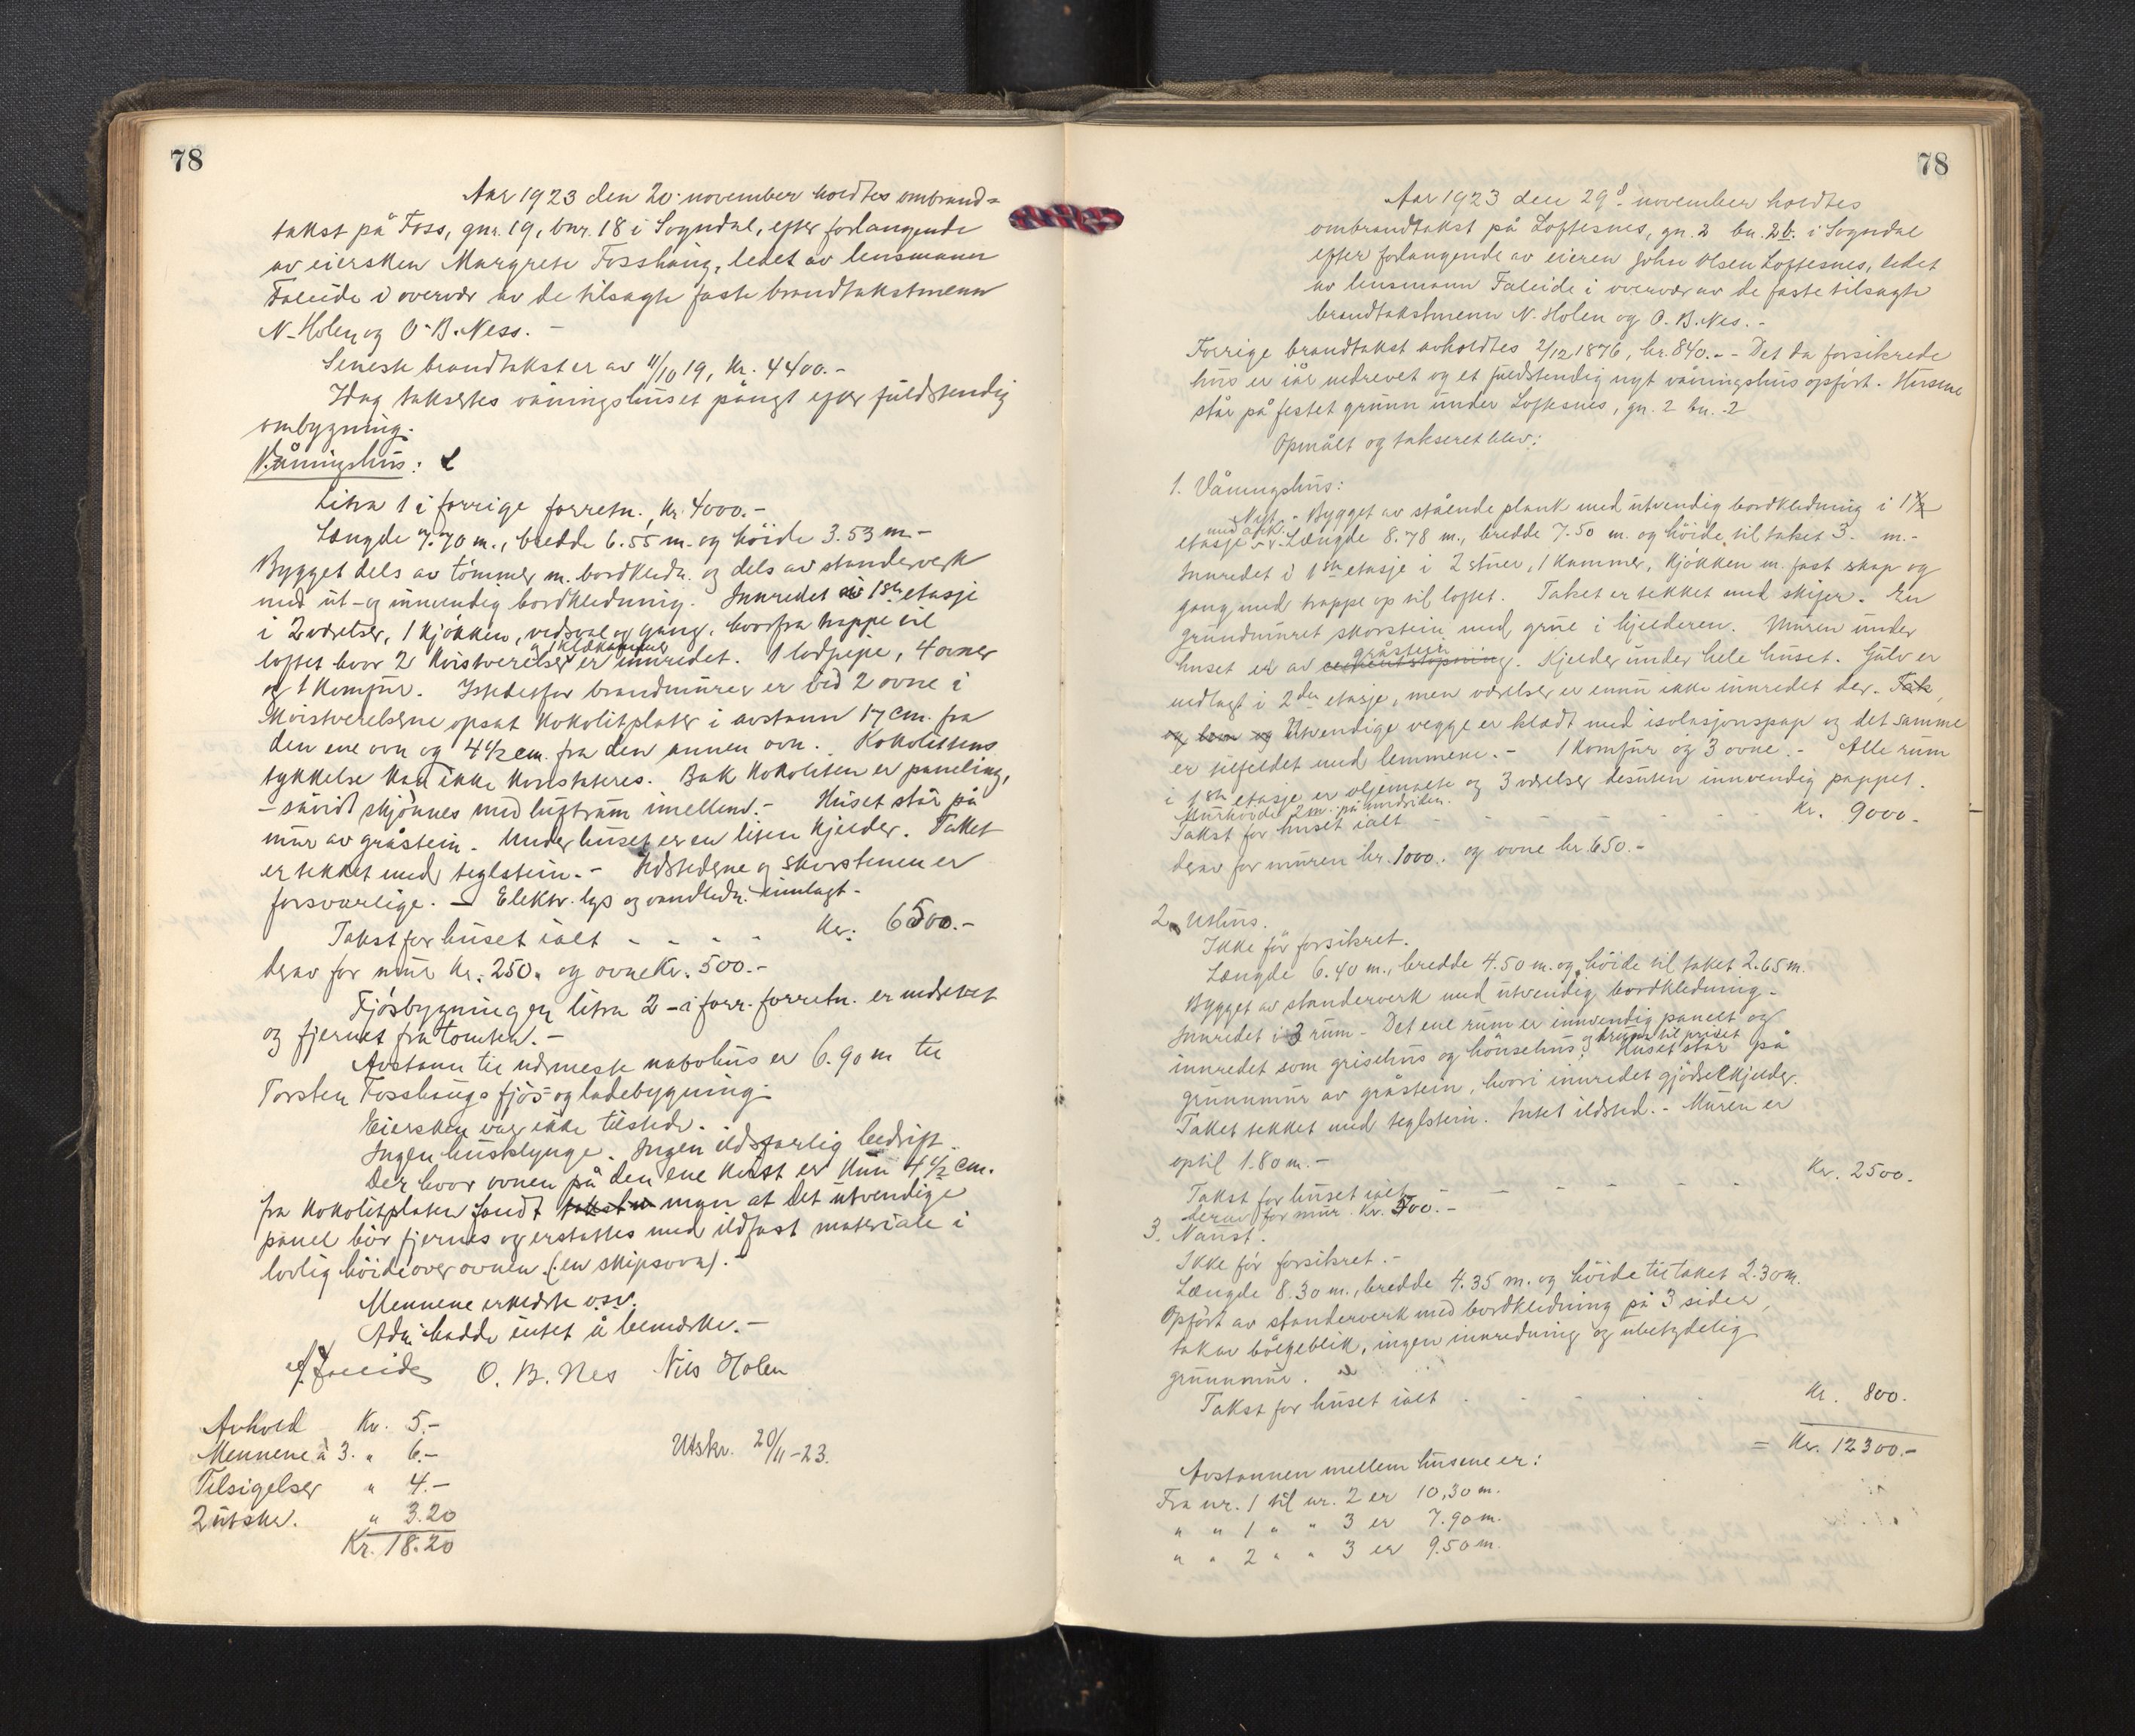 78
Aar 1923 den 20. november holdtes ombrand=
takst på Foss, gnr. 19, bnr. 18 i Sogndal, efter forlangende
av eiersken Margrete Fosshaug, ledet av lensmann
Faleide i overvær av de tilsagte faste brandtakstmenn
N. Holen og O. B. Ness. –
Seneste brandtakst er av 11/10 19, kr. 4400.–
Idag takseres våningshuset pångt efter fuldstendig
ombygning.
Våningshus:
Litra 1 i forrige forretn., kr. 4000.–
Længde 7.70 m., bredde 6.55 m. og höide 3.53 m.–
Bygget dels av tömmer m. bordkledn. og dels av standerverk
med ut- og innvendig bordkledning. Innredet i 1ste etasje
i 2 værelser, 1 kjökken, vedsval og gang, hvorfra trappe til
og 1 klækammer
loftet hvor 2 kvistverelser er innredet. 1 lodpipe, 4 ovner
og 1 komfur. Istedetfor brandmurer er ved 2 ovne i
kvistverelserne opsat kokolitplater i avstann 17 cm. fra
den ene ovn og 4 1/2 cm. fra den annen ovn. Kokolittens
tykkelse kan ikke konstateres. Bak kokoliten er paneling,
– såvidt skjönnes med luftrum imellem.– Huset står på
mur av gråstein. Under huset er en liten kjelder. Taket
er tekket med teglstein.– Ildstederne og skorstenen er
forsvarlige. – Elektr. lys og vandledn. innlagt.
Takst for huset ialt - - - - kr. 6500.–
derav for mur kr. 250. og ovne kr. 500.–
Fjösbygningen litra 2 – i forr. forretn. er nedrevet
og fjernet fra tomten.–
Avstann til nærmeste nabohus er 6.90 m til
Torsten Fosshaugs fjös- og ladebygning.
Eiersken var ikke tilstede.
Ingen husklynge. Ingen ildsfarlig bedrift.
Der hvor ovnen på den ene kvist er kun 4 1/2 cm.
fra kokolitplaten fandt man at det utvendige
panel bör fjernes og erstattes med ildfast materiale i
lovlig höide over ovnen (: en skipsovn).–
Mennene erklærte o.s.v.
Adm. hadde intet å bemerke.–
Faleide O. B. Nes Nils Holen
Avhold kr. 5.–
Mennene à 3. " 6.–
Tilsigelser " 4.–
2 utskr. " 3.20
Kr. 18.20
Utskr. 20/11–23.
78
Aar 1923 den 29d. november holdtes
ombrandtakst på Loftesnes, gn. 2 bn. 2b. i Sogndal
efter forlangende av eieren John Olsen Loftesnes, ledet
av lensmann Faleide i overvær av de faste tilsagte
brandtakstmenn N. Holen og O. B. Nes.–
Forrige brandtakst avholdtes 2/12 1876, kr. 840.–– Det da forsikrede
hus er iår nedrevet og et fuldstendig nyt våningshus opfört. Husene
står på festet grunn under Loftesnes, gn. 2 bn. 2
Opmålt og takseret blev:
1. Våningshus:
Nyt. – Bygget av stående plank med utvendig bordkledning i 1 1/2
med ark.
etasje – Længde 8.78 m., bredde 7.50 m. og höide til taket 3. m.–
Innredet i 1ste etasje i 2 stuer, 1 kammer, kjökken m. fast skap og
gang med trappe op til loftet. Taket er tekket med skifer. En
grundmuret skorstein med grue i kjelderen. Muren under
gråstein
huset er av cementstöpning. Kjelder under hele huset. Gulv er
nedlagt i 2den etasje, men værelser er ennu ikke innredet der. Tak
og Utvendige vegge er klædt med isolasjonspap og det samme
er tilfeldet med lemmene.– 1 komfur og 3 ovne.– Alle rum
i 1ste etasje er oljemalte og 3 værelser desuten innvendig pappet.
Murhöide 2 m. på nedsiden.
Takst for huset ialt - - - - - kr. 9000.
derav for muren kr. 1000. og ovne kr. 650.–
2. Uthus.
Ikke för forsikret.
Længde 6.40 m., bredde 4.50 m. og höide til taket 2.65 m.
Bygget av standerverk med utvendig bordkledning.
Innredet i 3 rum – Det ene rum er innvendig panelt og
innredet som grisehus og hönsehus. Huset står på
grunnmur av gråstein, hvori innredet gjödselkjelder.
Taket tekket med teglstein. Intet ildsted.– Muren er
optil 1.80 m.–
Takst for huset ialt - - - - - kr. 2500.
derav for mur. kr. 500.–
3. Naust.
Ikke för forsikret.–
Længde 8.30 m., bredde 4.35 m. og höide til taket 2.30 m.
Opfört av standerverk med bordkledning på 3 sider,
tak av bölgeblik, ingen innredning og ubetydelig
grunnmur.
Takst for huset ialt - - - - kr. 800.
= Kr. 12300.–
Avstannen mellem husene er:
Fra nr. 1 til nr. 2 er 10,30 m.
" " 1 " " 3 er 7.90 m.
" " 2 " " 3 er 9.50 m.